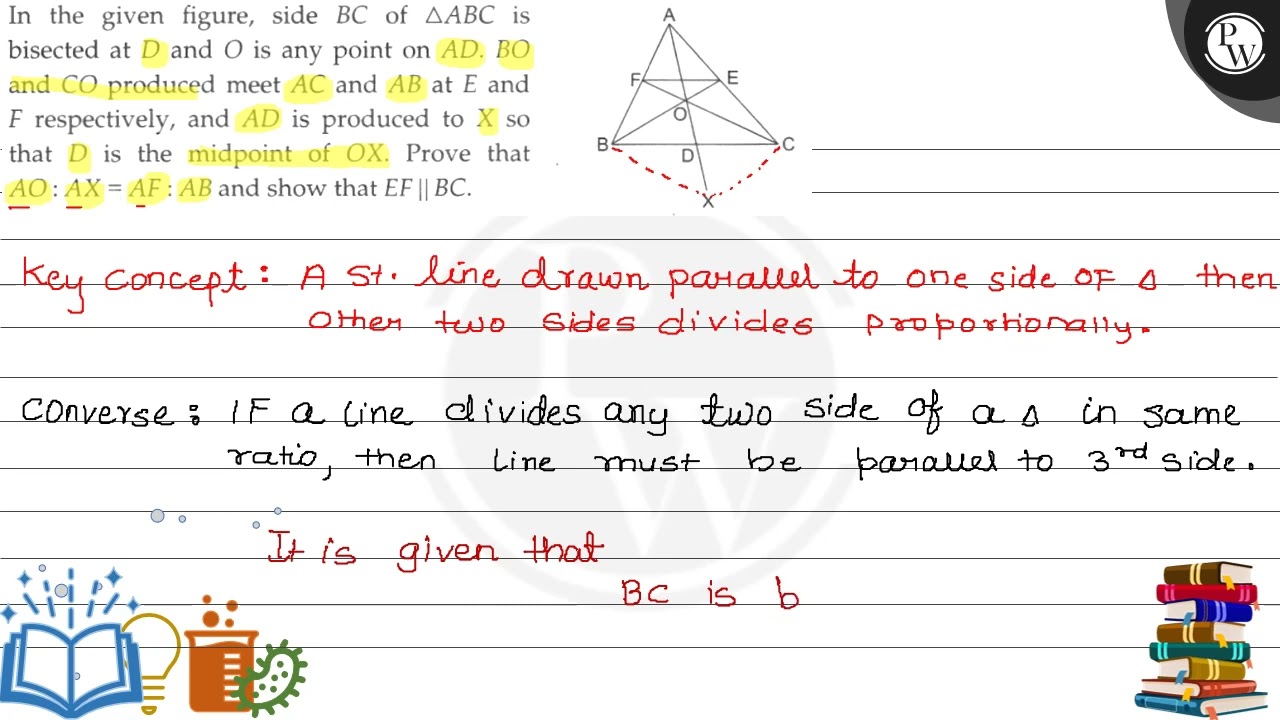 In the given figure, side BC of △ABC is
bisected at D and O is any point on AD. BO
and CO produced meet AC and AB at E and
F respectively, and AD is produced to X so
that D is the midpoint of OX. Prove that
AO : AX = AF : AB and show that EF || BC.
A
F
E
O
B
D
C
X
PW
Key concept: A St. line drawn parallel to one side OF △ then
other two sides divides proportionally.
Converse: IF a line divides any two side of a △ in same
ratio, then line must be parallel to 3rd side.
It is given that
BC is b
PW